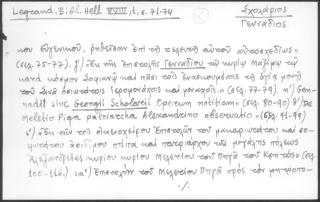 Legrand, Bibl. Hell XVIII, 1, σ. 71-74
Σχολάριος
Γεννάδιος
που εὐγενικοῦ, ῥηθεῖσαν ἐπὶ τῇ τελευτῇ αὐτοῦ αὐτοσχεδίως»
(σελ. 75-77). ζ') «ἐκ τῆς Ἐπιστολῆς Γενναδίου τῷ κυρίῳ Μαξίμῳ τῷ
κατὰ κόσμον Σοφιανῷ καὶ πᾶσι τοῖς ἐνασκουμένοις τῇ ἁγίᾳ μονῇ
τοῦ Σινᾶ ὁσιωτάτοις ἱερομονάχοις καὶ μοναχοῖς.» (σελ. 77-79). η') Gen-
nadii sive Georgii Scholarii Operum notitiam» (σελ. 80-90) θ') De
Meletio Piga patriarcha Alexandrino observatio» (σελ. 91-99)
ι') «ἐκ τῆς τοῦ Ἐπιστολῶν τοῦ μακαριωτάτου καὶ
σοφωτάτου ἀοιδίμου πάπα καὶ πατριάρχου τῆς μεγάλης πόλεως
Ἀλεξανδρείας κυρίου κυρίου Μελετίου τοῦ Πηγᾶ τοῦ Κρητός» (σελ.
100-116.) ια') Ἐπιστολὴν τοῦ Μελετίου Πηγᾶ πρὸς τὸν μητροπο-
./.